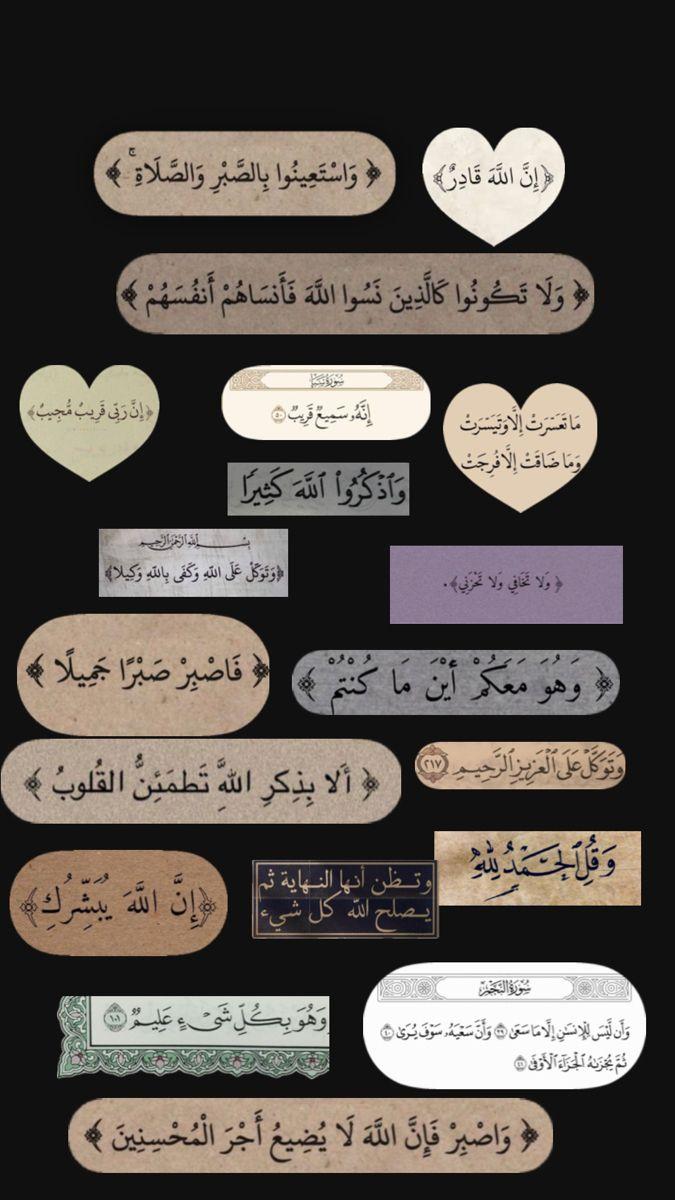 ﴿ وَاسْتَعِينُوا بِالصَّبْرِ وَالصَّلَاةِ ۚ ﴾
﴿إِنَّ اللَّهَ قَادِرٌ﴾
﴿ وَلَا تَكُونُوا كَالَّذِينَ نَسُوا اللَّهَ فَأَنسَاهُمْ أَنفُسَهُمْ ﴾
﴿إِنَّ رَبِّي قَرِيبٌ مُّجِيبٌ﴾
سُورَةُ سَبَإٍ
إِنَّهُۥ سَمِيعٌ قَرِيبٌ ٥٠
مَا تَعَسَّرَتْ إِلَّا وَتَيَسَّرَتْ
وَمَا ضَاقَتْ إِلَّا فُرِجَتْ
وَٱذْكُرُوا۟ ٱللَّهَ كَثِيرًا
بِسْمِ ٱللَّهِ ٱلرَّحْمَٰنِ ٱلرَّحِيمِ
﴿وَتَوَكَّلْ عَلَى اللَّهِ وَكَفَى بِاللَّهِ وَكِيلًا﴾
﴿ وَلا تَخَافِي وَلا تَحْزَنِي﴾.
﴿ فَاصْبِرْ صَبْرًا جَمِيلًا ﴾
﴿ وَهُوَ مَعَكُمْ أَيْنَ مَا كُنْتُمْ ﴾
﴿ أَلا بِذِكرِ اللَّهِ تَطمَئِنُّ القُلوبُ ﴾
وَتَوَكَّلْ عَلَى ٱلْعَزِيزِ ٱلرَّحِيمِ ٢١٧
وَقُلِ ٱلْحَمْدُ لِلَّهِ
﴿إِنَّ اللَّهَ يُبَشِّرُكِ﴾
وتظن أنها النهاية ثم
يصلح الله كل شيء
وَهُوَ بِكُلِّ شَىْءٍ عَلِيمٌ ١٠١
سُورَةُ النَّجْمِ
وَأَن لَّيْسَ لِلْإِنسَٰنِ إِلَّا مَا سَعَىٰ ٣٩ وَأَنَّ سَعْيَهُۥ سَوْفَ يُرَىٰ ٤٠
ثُمَّ يُجْزَىٰهُ ٱلْجَزَآءَ ٱلْأَوْفَىٰ ٤١
﴿ وَاصْبِرْ فَإِنَّ اللَّهَ لَا يُضِيعُ أَجْرَ الْمُحْسِنِينَ ﴾